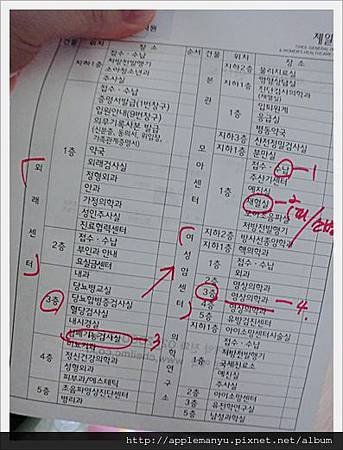 제일
건물 위치 장 소
접수·수납
지하1층 처방전발행기
소아청소년과
주사실
접수·수납
증명서발급(1번창구)
입원안내(9번창구)
의무기록사본 발급
(신분증, 동의서, 위임장,
가족관계증명서)
1층 약국
외래검사실
정형외과
안과
가정의학과
성인주사실
진료협력센터
외래센터
2층 접수·수납
부인과 안내
요실금센터
내과
당뇨병교실
3층 당뇨합병증검사실
혈당검사실
내시경실
심폐기능검사실 - 3
비뇨기과
4층 정신건강의학과
성형외과
피부과/에스테틱
5층 초음파영상진단센터
병리과
순서 건물 위치 장 소
본관
지하2층 물리치료실
영양상담실
지하1층 진단검사의학과
(채혈실)
1층 입퇴원계
응급실
병동약국
지하3층 산전정밀검사실
지하1층 분만실
모아센터
1층 접수·수납 - 1
주산기센터
예진실
채혈실 - 2
모아초음파실
처방전발행기
지하2층 방사선종양학과
지하1층 핵의학과
여성암센터
1층 접수·수납
2층 외과
3층 영상의학과 - 4.
4층 영상의학과
5층 유방검진센터
의학연구소
지하1층 아이소망센터시술실
1층 접수·수납
처방전발행기
국제진료소
예진실
주사실
2층 아이소망센터
3층 유전학연구실
5층 남성과학실
http://applemanyu.pixnet.net/album